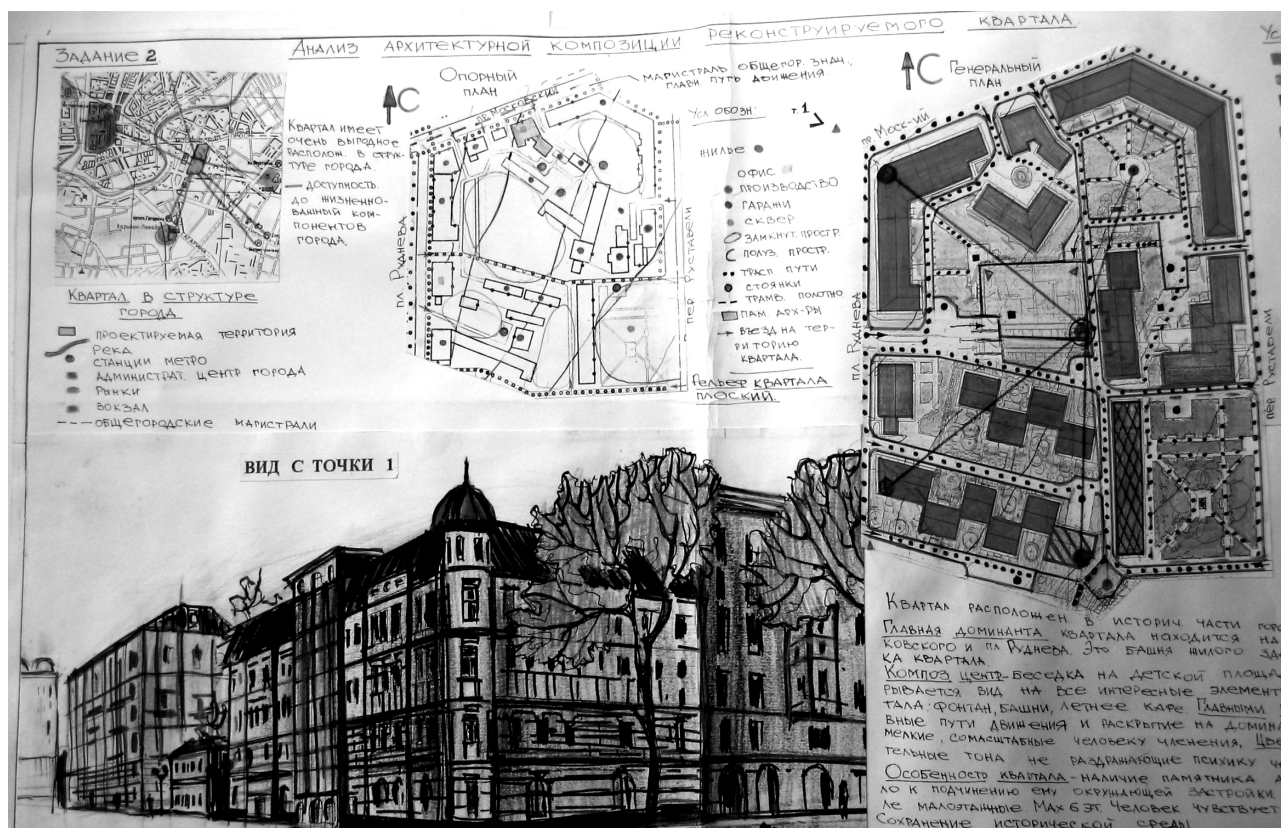 Задание 2
Анализ архитектурной композиции реконструируемого квартала
Ус
Квартал имеет
очень выгодное
располож. в струк-
туре города.
— доступность
до жизненно-
важный ком-
понентов
города.
Квартал в структуре
города
проектируемая территория
река
станции метро
администрат. центр города
рынки
вокзал
общегородские магистрали
Опорный
план
С
магистраль общегор. знач.,
главн. путь движения.
пр Московский
пл. Руднева
пер Руставели
Рельеф квартала
плоский.
Усл обозн:
т.1
жилье
офис
производство
гаражи
сквер
замкнут. простр.
полуз. простр.
трасп пути
стоянки
трамв. полотно
пам арх-ры
въезд на тер-
риторию
квартала.
С
Генеральный
план
пл Руднева
пер Руставели
ВИД С ТОЧКИ 1
Квартал расположен в историч части горо
Главная доминанта квартала находится на
ковского и пл Руднева. Это башня жилого зда
ка квартала
Композ центр-беседка на детской площа
рывается вид на все интересные элемент
тала: фонтан, башни, летнее кафе. Главными
вные пути движения и раскрытие на домина
мелкие, сомасштабные человеку членения. Цве
тельные тона не раздражающие психику че
Особенность квартала - наличие памятника а
ло к подчинению ему окружающей застройки
ле малоэтажные. Мах 6 эт. Человек чувствует
Сохранение исторической среды